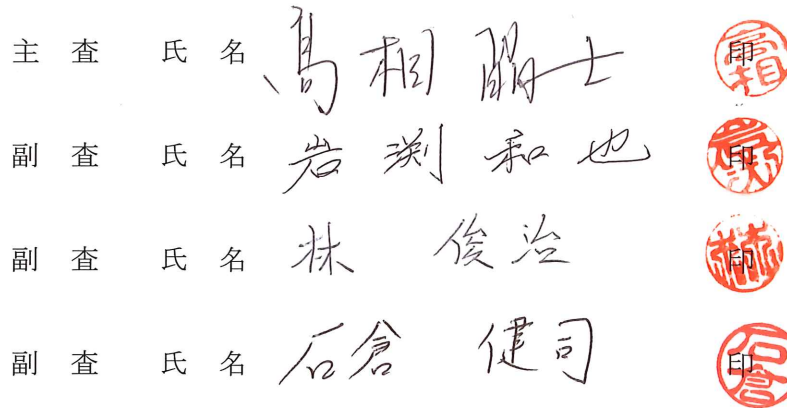 主査 氏名 髙相晶士 印
副査 氏名 岩渕和也 印
副査 氏名 林 俊治 印
副査 氏名 石倉 健司 印